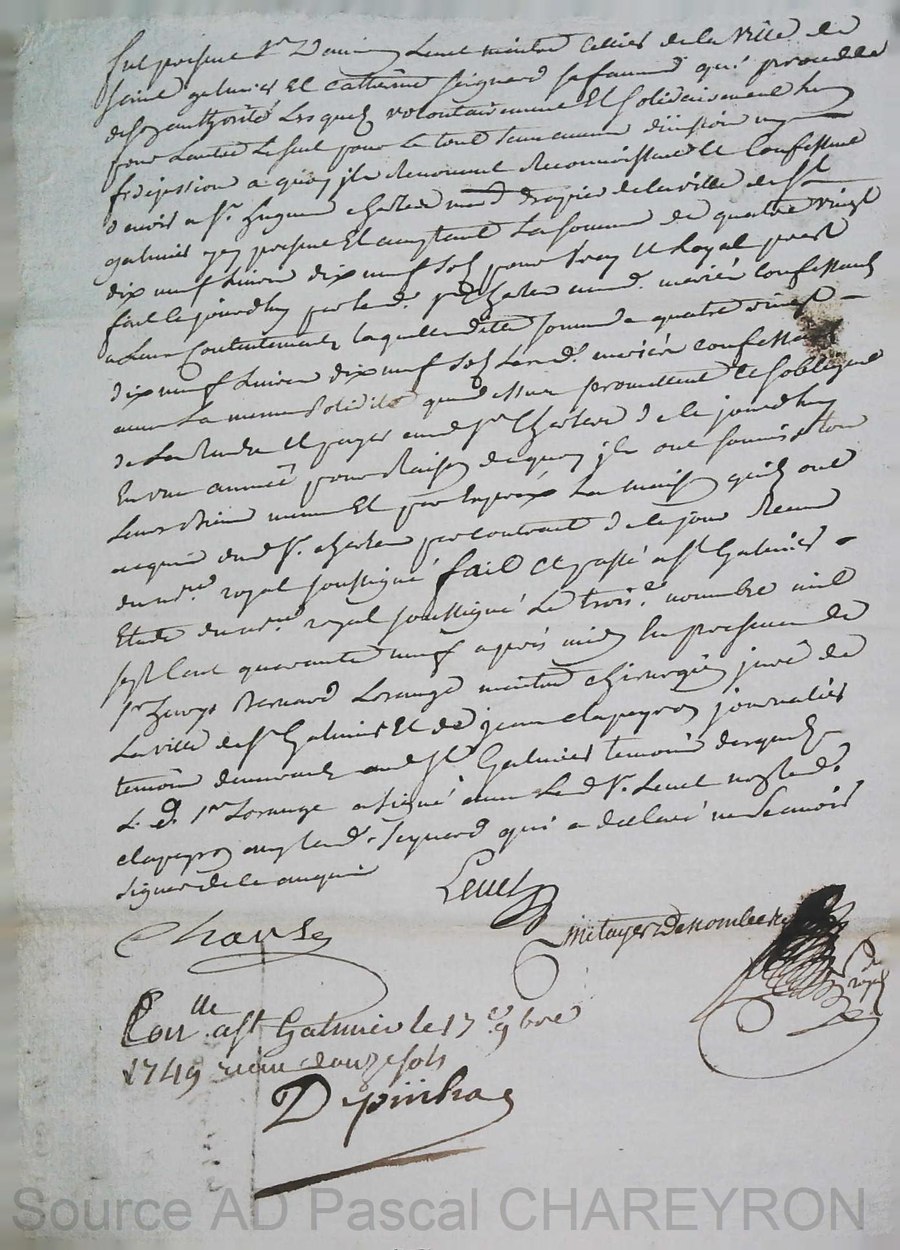 fut present Sr Leuet maitre de la ville de
saint galmier Et Catherine seignard sa femme qui procedde
de son authorité Lesquels volontairement Et solidairement
pour Lautre Le seul pour le tout sans division ny
a quoy jls Renoncent Reconnoissent et Confessent
devoir a Sr hugues charles md drapier de la ville de St
galmier jcy present Et acceptant La somme de quatre vingt
dix neuf Livres dix neuf sols pour et Loyal prest
fait ce jourdhuy par led. Sr Charles aud. mariés confessants
a Leur Contentement laquelle ditte somme de quatre vingt
dix neuf Livres dix neuf sols Lesd. mariés confessants
avec La meme solidité que dessus promettent et soblige
de Luy Rendre Et payer aud Sr Charles de ce jourdhuy
En une année pour Raison dequoy jls ont soumis tous
Leurs biens Et par Exprés La maison quils ont
acquis dud Sr. charles par contrat de ce jour Receu
du nre. royal soussigné fait et passé a St Galmier
Etude du nre. royal soussigné Le trois.e nouembre mil
sept Cent quarante neuf apres midy En presence de
Sr Bernard Lorange maitre chirurgien juré de
La ville de St Galmier Et de jean clapeyron journalier
temoins demeurants aud St Galmier temoins desquels
L. d. Sr Lorange a signé avec Led Sr. Leuet non led.
clapeyron ny lad. seignard qui a declaré ne scauoir
signer de ce enquis
Leuet
Charles
Metayer De
royal
Con.lle a St Galmier le 17.e 9bre
1749 receu douze sols
Source AD Pascal CHAREYRON